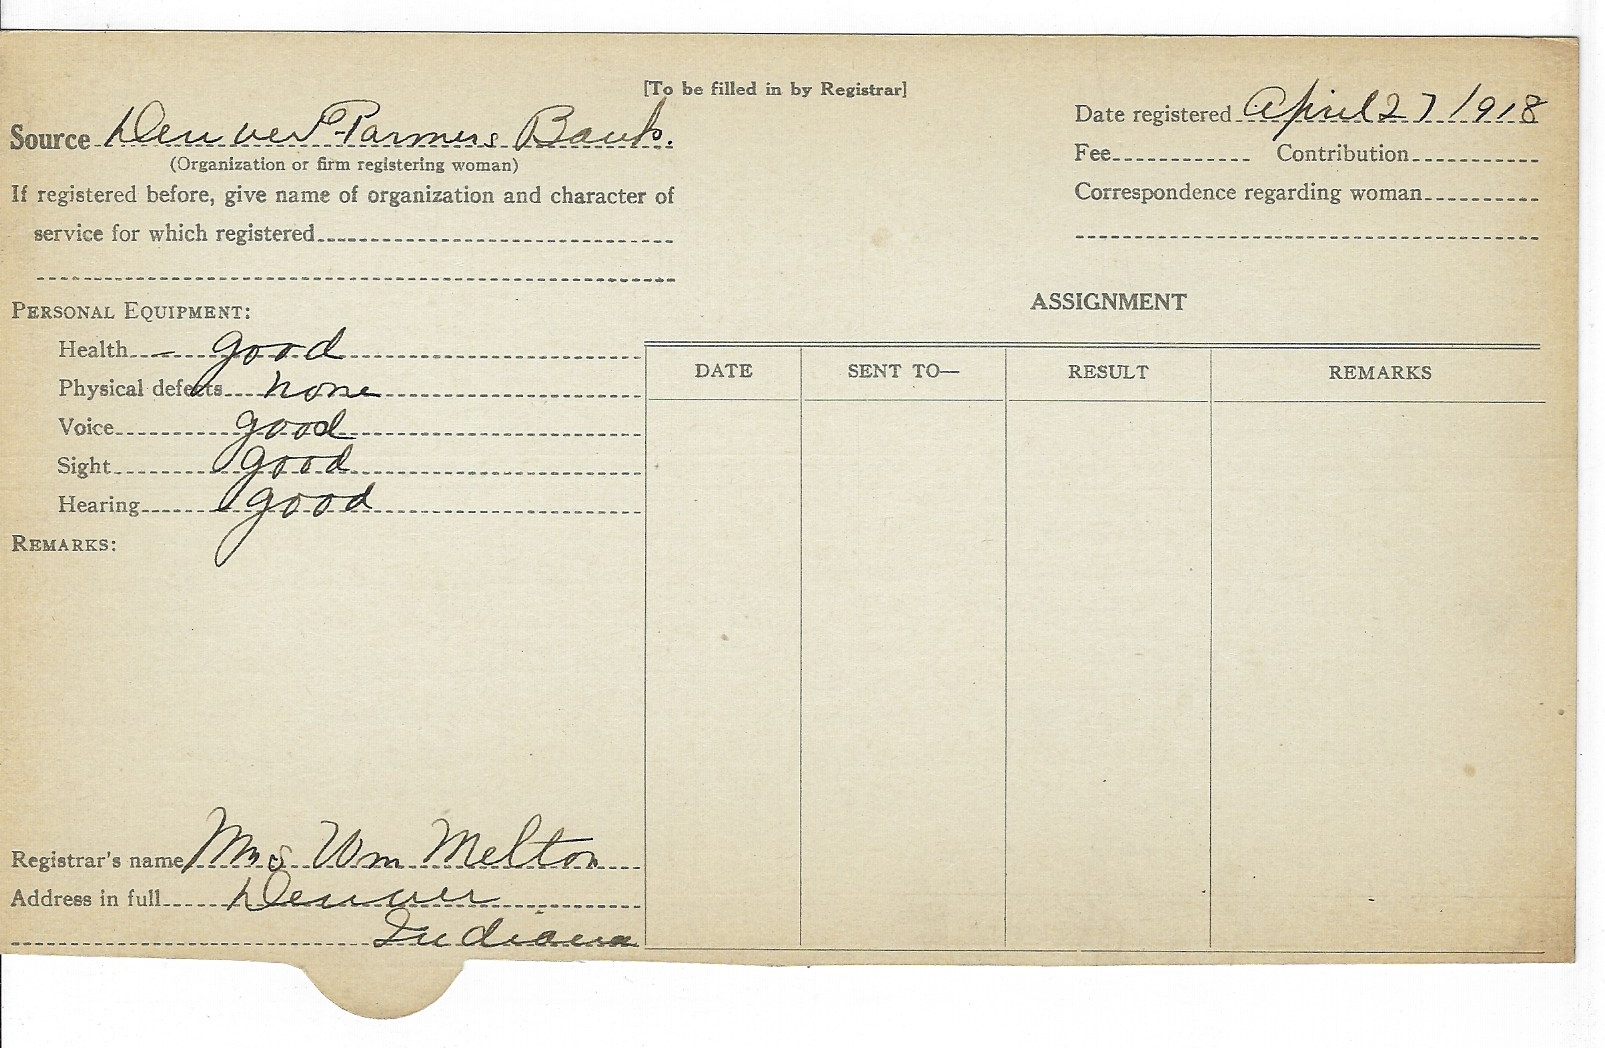 [To be filled in by Registrar]
Source Denver Farmers Bank.
(Organization or firm registering woman)
If registered before, give name of organization and character of
service for which registered
Date registered April 27 1918
Fee Contribution
Correspondence regarding woman
PERSONAL EQUIPMENT:
Health - good
Physical defects none
Voice good
Sight good
Hearing good
REMARKS:
ASSIGNMENT
DATE SENT TO— RESULT REMARKS
Registrar's name Mrs Wm Melton
Address in full Denver
Indiana